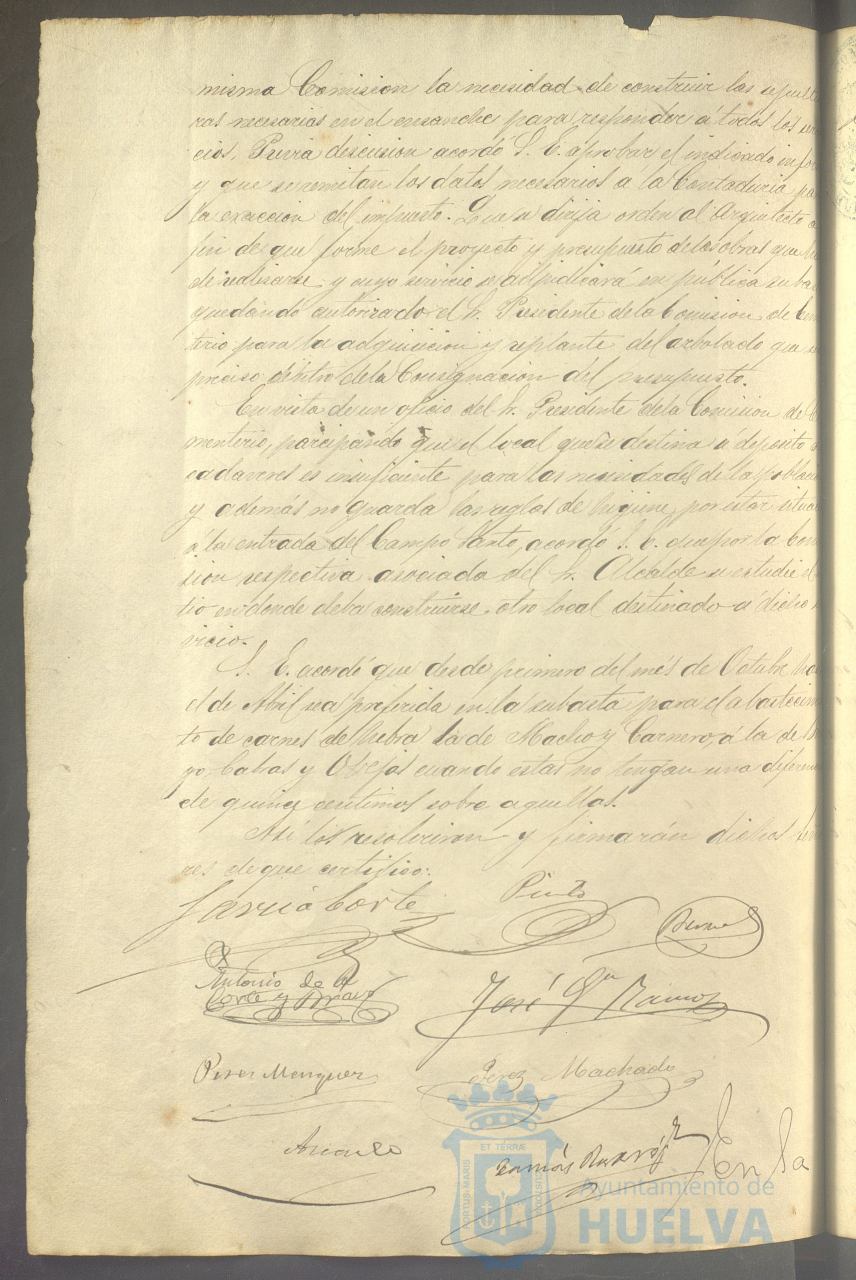 misma Comision la necesidad de construir las sepultu
ras necesarias en el ensanche para responder á todos los ser
cios. Previa discusion acordó S. E. aprobar el indicado infor
y que se remitan los datos necesarios a la Contaduria pa
la exaccion del impuesto. Que se dirija orden al Arquitecto a
fin de que forme el proyecto y presupuesto de las obras que
de realizarse y cuyo servicio se adjudicará en pública suba
quedando autorizado el Sr. Presidente de la Comision de Cem
terio para la adquisicion y replante del arbolado que
preciso dentro de la Consignacion del presupuesto.
En vista de un oficio del Sr. Presidente de la Comision de Ce
menterio, participando que el local que se destina a deposito
cadaveres es insuficiente para las necesidades de la poblac
y además no guarda las reglas de higiene por estar situa
á la entrada del Campo Santo, acordó S. E. que por la Com
sion respectiva asociada del Sr. Alcalde se estudie el
tio en donde deba construirse otro local destinado a dicho
vicio.
S. E. acordó que desde primero del mes de Octubre ha
el de Abril sea preferida en la subasta para el abastecim
to de carnes de hebra la de Macho y Carnero, á la de
go, Cabras y Ovejas cuando estas no tengan una diferen
de quince centimos sobre aquellas.
Asi lo resolvieron y firmarán dichos Seño
res de que certifico.
García Corte
Pinto
Antonio de la
Corte y Bravo
José Gn Ramos
Perez Machado
ET TERRÆ
PORTUS MARIS
CUSTODIA
Ayuntamiento de
HUELVA